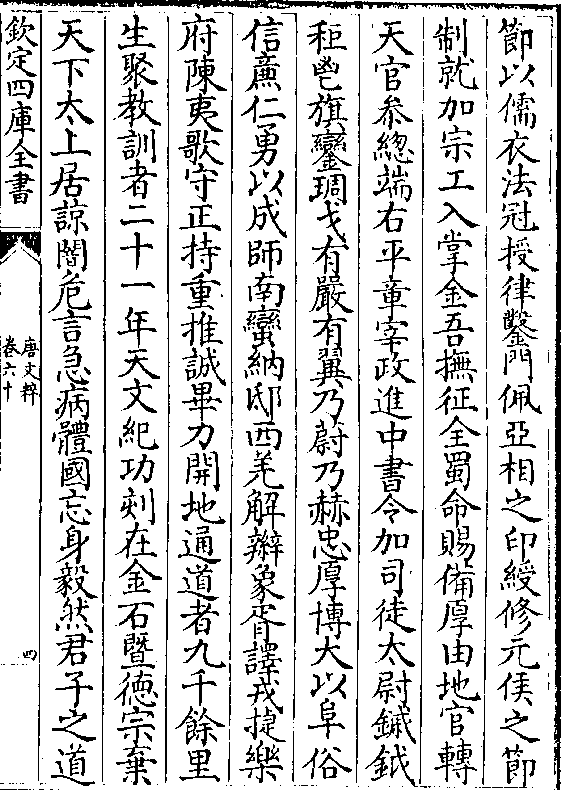 節以儒衣法冠授律鑿門佩亞相之印綬修元侯之節
制就加宗工入掌金吾撫征全蜀命賜備厚由地官轉
天官叅總端右平章宰政進中書令加司徒太尉鏚鉞
秬鬯旗鑾琱戈有嚴有翼乃蔚乃赫忠厚博大以阜俗
信亷仁勇以成師南蠻納邸西羌解辮象胥譯戎捷樂
府陳夷歌守正持重推誠畢力開地通道者九千餘里
生聚教訓者二十一年天文紀功刻在金石暨德宗棄
天下太上居諒闇危言急病體國忘身毅然君子之道
欽定四庫全書
唐文粹
卷六十
四